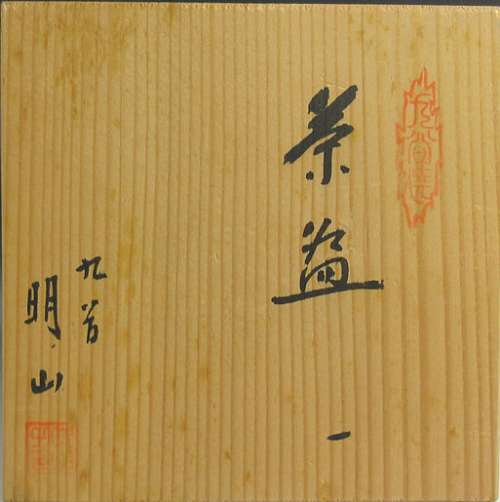 茶盌
一
九谷
明山